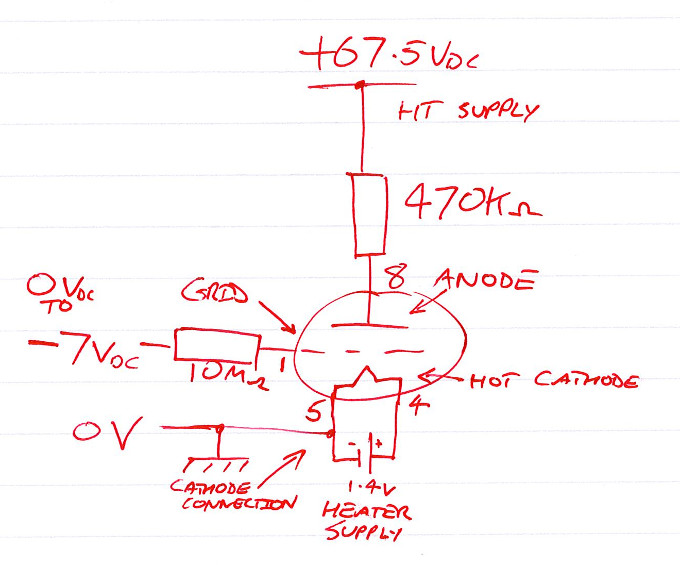 +67.5VDC
HT SUPPLY
470KΩ
8
ANODE
GRID
0VDC
TO
-7VDC
10MΩ
1
HOT CATHODE
5
4
0V
- +
CATHODE
CONNECTION
1.4V
HEATER
SUPPLY